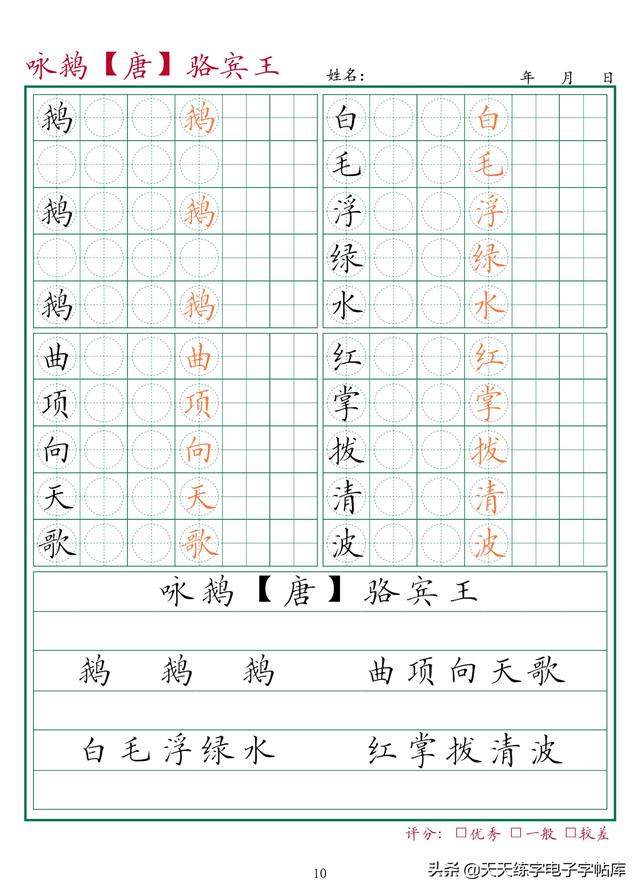 咏鹅【唐】骆宾王 姓名： 年 月 日
鹅 鹅 白 白
毛 毛
鹅 鹅 浮 浮
绿 绿
鹅 鹅 水 水
曲 曲 红 红
项 项 掌 掌
向 向 拨 拨
天 天 清 清
歌 歌 波 波
咏鹅【唐】骆宾王
鹅 鹅 鹅 曲项向天歌
白毛浮绿水 红掌拨清波
评分：□优秀 □一般 □较差
10
头条@天天练字电子字帖库